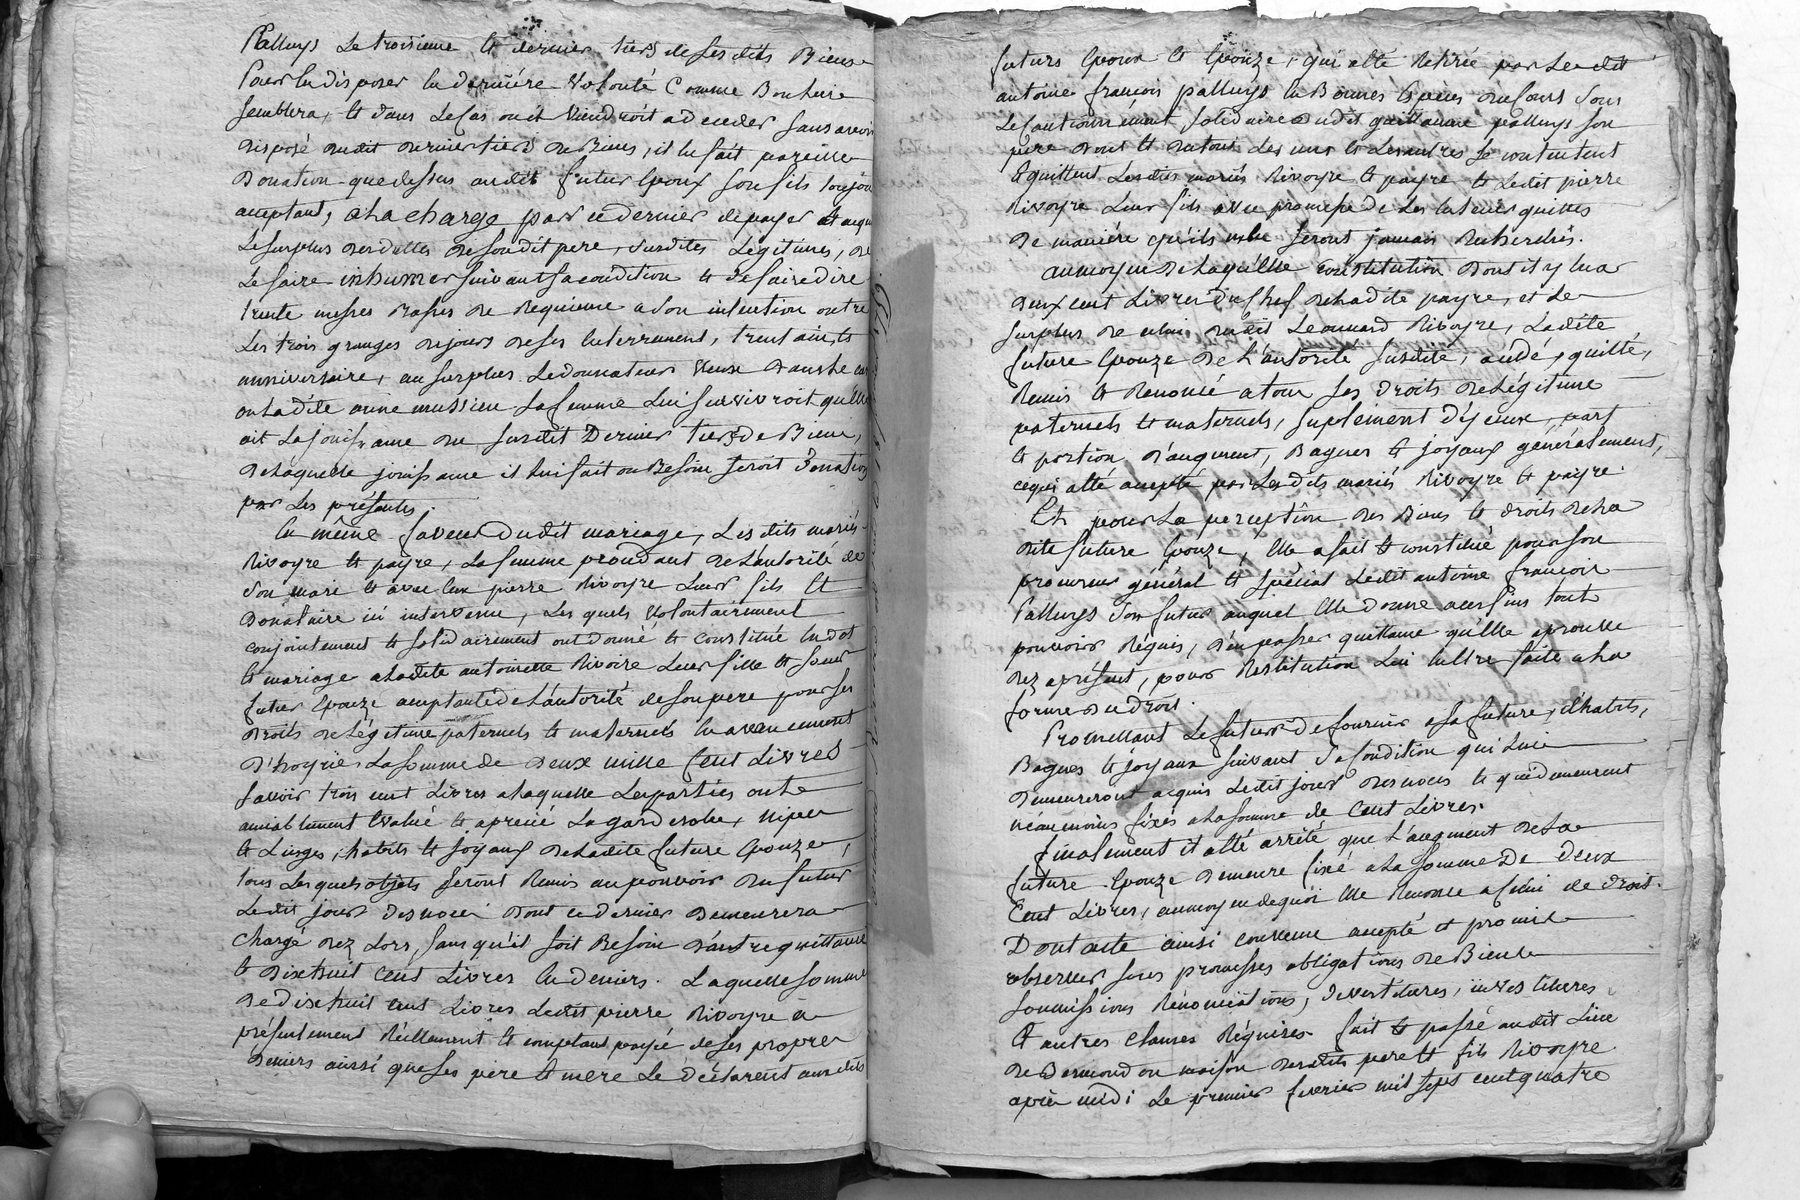 Palluys Le troisieme et dernier tiers de ses dits Biens
Pour En disposer En derniére volonté Comme Bon Luis
semblera, et dans Le Cas ou il viendroit a deceder sans avoir
disposé dudit dernier tiers de Biens, il En fait pareille
Donation que dessus audit futur Epoux son fils toujou
acceptant, a La charge par ce dernier de payer et acqu
Le surplus des dettes de son dit pere, susdites Legitimes, de
Le faire inhumer suivant sa condition et de faire dire
trente messes Basses de Requieme a son intention outre
Les trois granges du jours de ses Enterrement, trentain, et
anniversaire, au surplus Le donnateur veux dans Le cas
ou Ladite anne mussieu sa femme Lui survivroit qu'elle
ait La jouissance du susdit Dernier tiers de Biens,
de Laquelle jouissance il Lui fait ou Besoin seroit Donation
par Les présentes.
En même faveur dudit mariage, Les dits mariés
Rivoyre et payre, La femme procédant de L'autorité de
son mari et avec Eux pierre Rivoyre Leur fils Et
Donataire ici intervenu, Les quels volontairement
conjointement et solidairement ont donné et constitué En dot
Et mariage a Ladite antoinette Rivoire Leur fille et soeur
futur Epouze acceptante de L'autorité de son pere pour ses
droits de Légitime paternels et maternels En avancement
d'hoyrie La somme de Deux mille Cent Livres
savoir trois cent Livres a Laquelle Les parties ont
amiablement Evalué et aprecié La garderobe, nipes
et Linges, habits et joyaux de Ladite future Epouze,
tous Les quels objets seront Remis au pouvoir du futur
Ledit jour des noces dont ce dernier Demeurera
Chargé dez Lors, sans qu'il soit Besoin d'autre quittance
Et dixehuit Cent Livres En deniers. Laquelle somme
De dixehuit cent Livres Ledit pierre Rivoyre a
présentement Réellement et comptant payé de ses propre
Deniers aussi que ses pere et mere Le déclarent aux dits
futurs Epoux et Epouze, qui a été Retirée par Le dit
antoine françois palluys En Bonnes Especes du Cours sous
Le Cautionnément solidaire dudit guillaume palluys son
père dont et du tout Les uns et Les autres se contentent
Et quittent Lesdits mariés Rivoyre et payre et Ledit pierre
Rivoyre Leur fils avec promesse de Les En tenir quittes
De maniére qu'ils ne seront jamais Recherchés.
au moyen de Laquelle constitution dont il y En a
deux cent Livres du Chef de Ladite payre, et Le
surplus de celui dudit Leonnard Rivoyre, Ladite
future Epouze de L'autorité susdite, a cédé, quitté,
Remis et Renoncé a tous ses droits de Légitime
paternels et maternels, suplement d'iceux, part
et portion d'augment, Bagues et joyaux generalement,
ce qui a été accepté par Lesdits mariés Rivoyre et payre.
Et pour La perception des Biens et droits de La
dite future Epouze, Elle a fait et constitué pour son
procureur général et spécial Ledit antoine françois
Palluys son futur auquel Elle donne a ces fins tout
pouvoir Réquis, d'en passer quittance qu'Elle aprouve
dez aprésent, pour Restitution Lui En Etre faite a La
forme du droit.
Promettant Le futur de fournir a sa future, d'habits,
Bagues et joyaux suivant sa Condition qui Lui
Demeureront acquis Ledit jour des noces et qui demeurent
néaumoins fixés a La somme de Cent Livres.
finalement il a été arrêté que L'augment de La
future Epouze demeure fixé a La somme De deux
Cent Livres, au moyen de quoi Elle Renonce a celui de droit.
Dont acte ainsi convenu accepté et promis
observer sous promesses obligations de Biens
soumissions Rénonciations, Devestitures, investitures
Et autres Clauses Réquises. fait et passé au dit Lieu
de Bermond en maison desdits pere et fils Rivoyre
aprés midi Le premier fevrier mil sept cent quatre